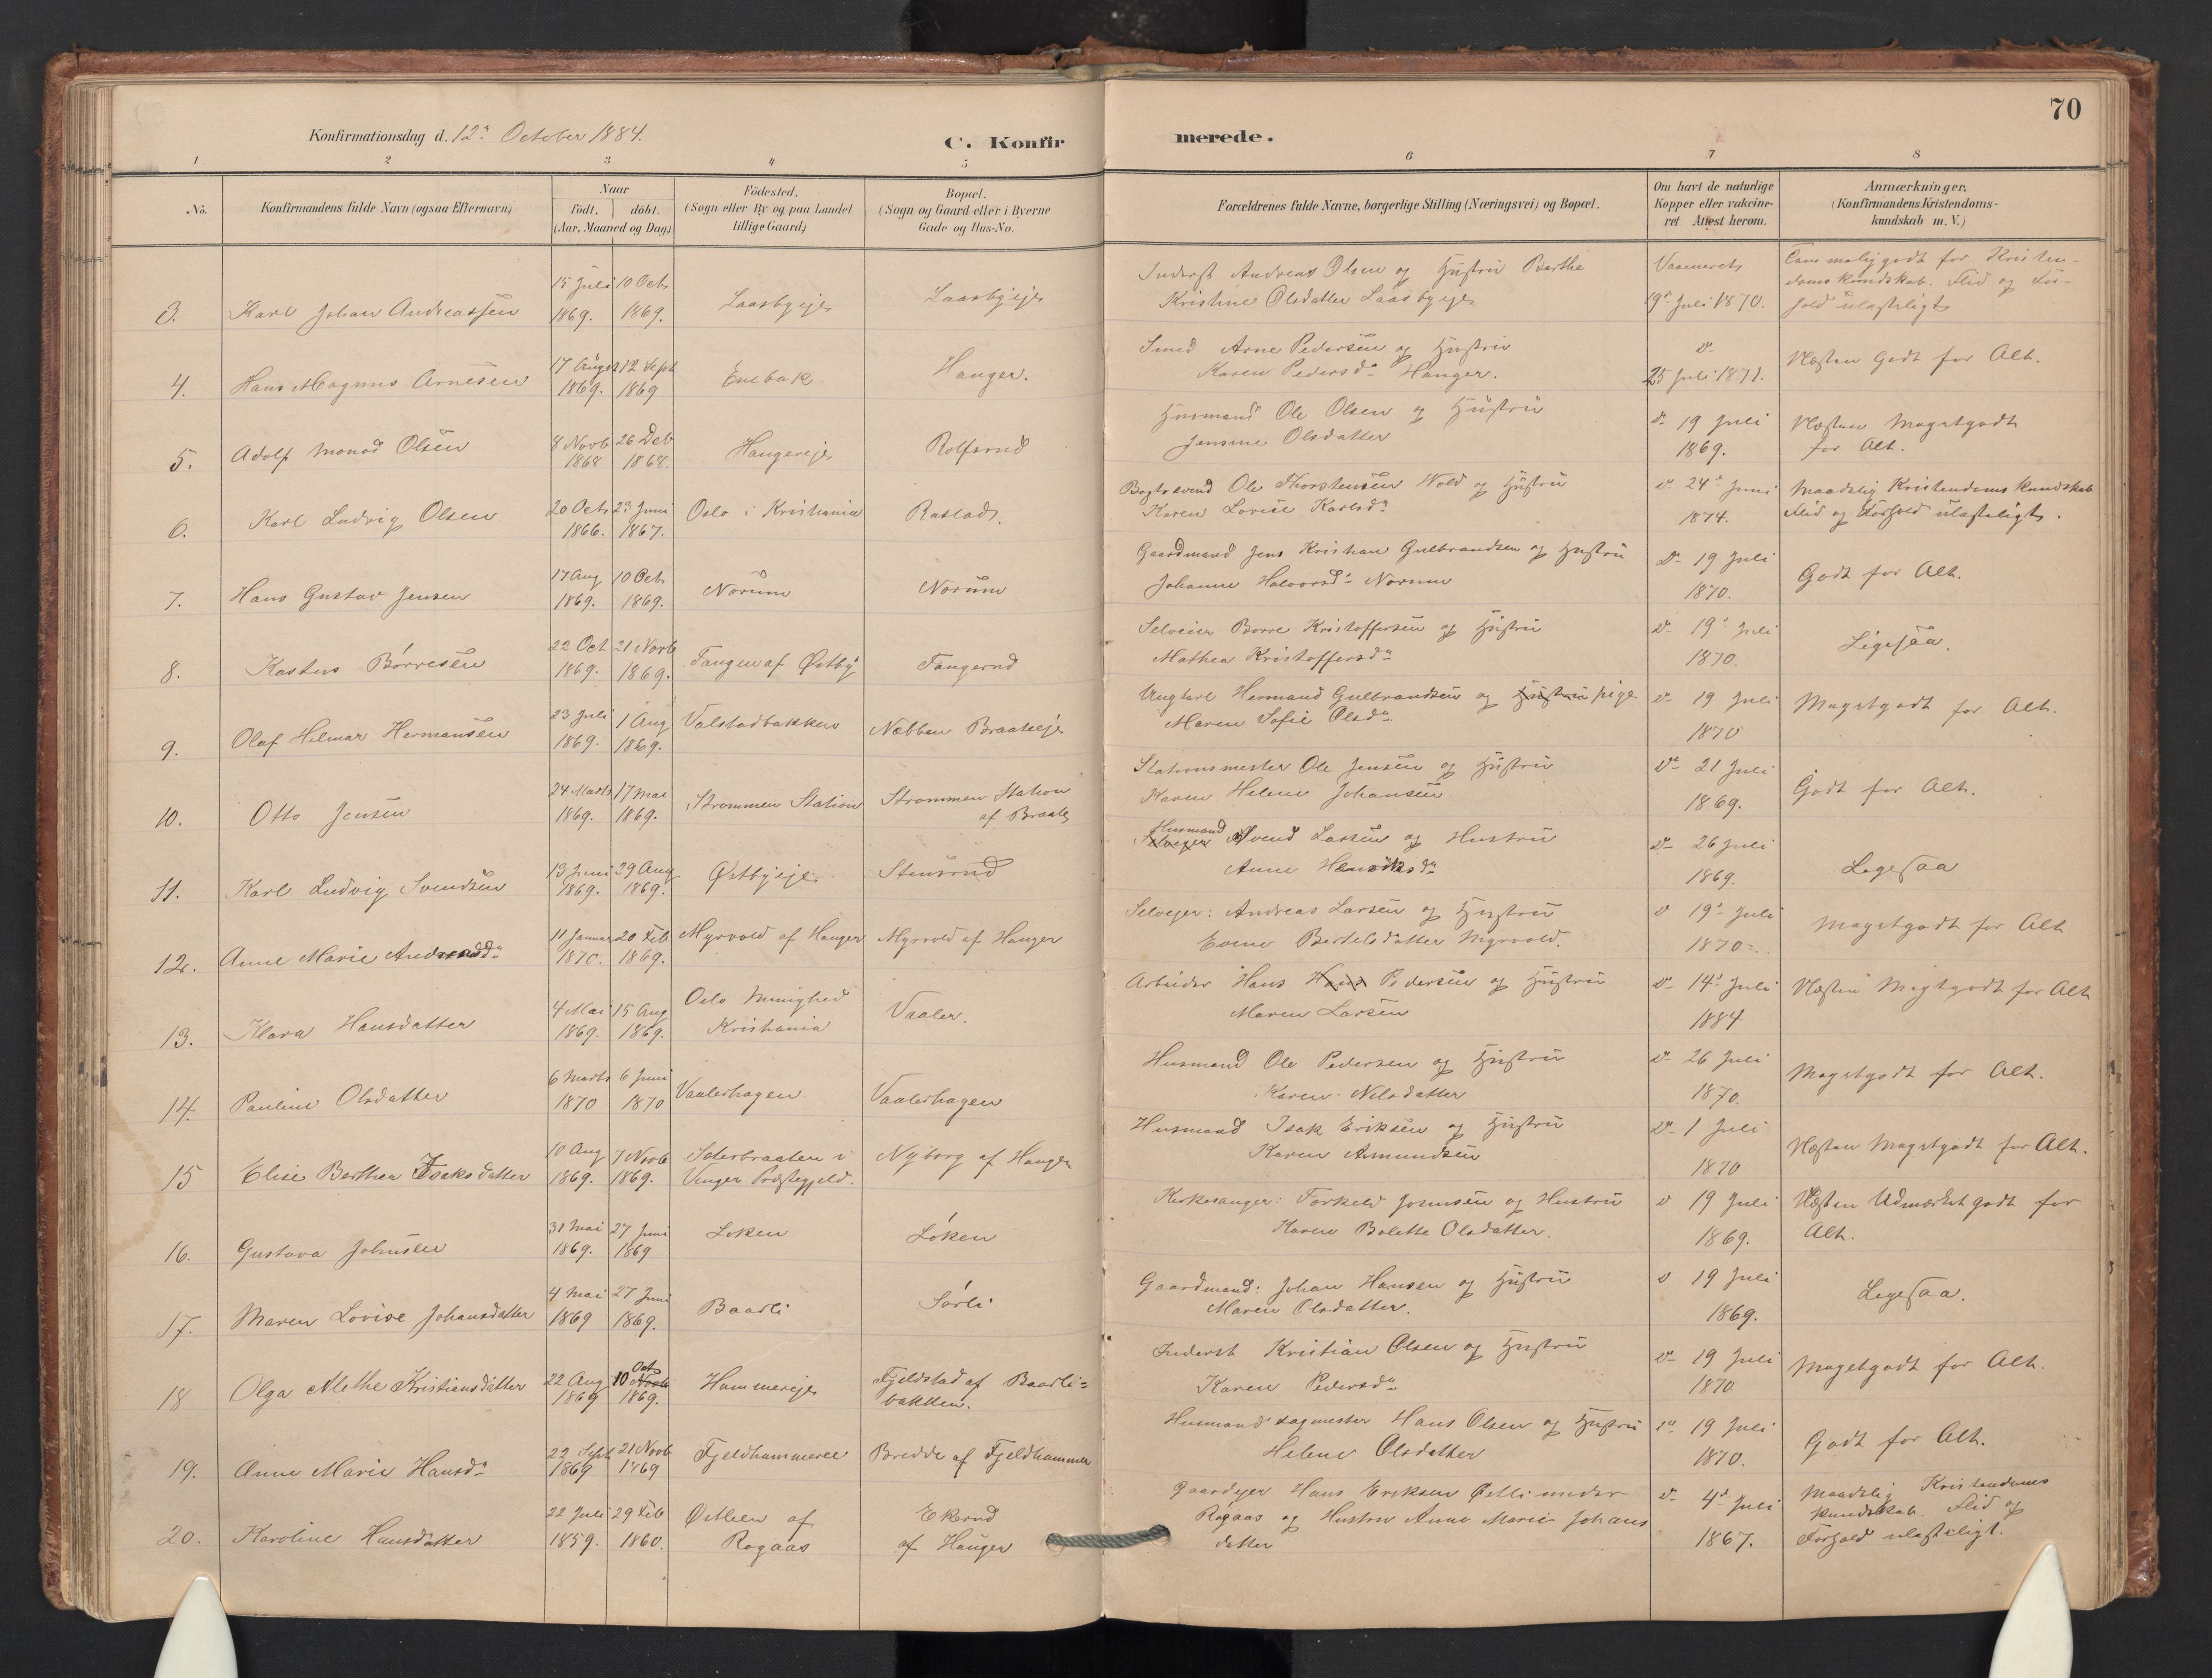 70
Konfirmationsdag d. 12te October 1884.
C. Konfirmerede.
1 2 3 4 5 6 7 8
No.
Konfirmandens fulde Navn (ogsaa Efternavn)
Naar
født. døbt.
(Aar, Maaned og Dag)
Fødested.
(Sogn eller By og paa Landet
tillige Gaard)
Bopæl.
(Sogn og Gaard eller i Byerne
Gade og Hus-No.
Forældrenes fulde Navne, borgerlige Stilling (Næringsvei) og Bopæl.
Om havt de naturlige
Kopper eller vakcine-
ret Attest herom.
Anmærkninger.
(Konfirmandens Kristendoms-
kundskab m. V.)
3. Karl Johan Andreassen 15 Juli 1869. 10 Oct 1869. Laasbyeje Laasbyeje
Inderst Andreas Olsen og Hustru Berthe
Kristine Olsdatter Laasbyeje
19de Juli 1870.
godt for Kristen-
doms kundskab. Flid og For-
hold ulasteligt
4. Hans Magnus Arnesen 17 August 1869. 12 Sept 1869 Enebak Hanger.
Smed Arne Pedersen og Hustru
Karen Pedersd. Hanger.
25 Juli 1871.
Næsten Godt for Alt.
5. Adolf Monod Olsen 8 Novb 1868 26 Deb 1868. Hangereje Rolfsrud
Husmand Ole Olsen og Hustru
Jensine Olsdatter
19 Juli
1869.
Næsten Megetgodt
for Alt.
6. Karl Ludvig Olsen 20 Oct 1866. 23 Juni 1867. Oslo i Kristiania Rastad.
Ole Thorstensen Wold og Hustru
Karen Lovise Karlsd.
24de Juni
1874.
Maadelig Kristendoms kundskab
Flid og Forhold ulasteligt.
7. Hans Gustav Jensen 17 Aug 1869. 10 Oct 1869. Norum Norum
Gaardmand Jens Kristian Gulbrandsen og Hustru
Johanne Halvorsd. Norum
19 Juli
1870.
Godt for Alt.
8. Kastus Børresen 22 Oct 1869. 21 Novb 1869. Tangen af Østby Tangerud
Selveier Borre Kristoffersen og Hustru
Mathea Kristoffersd.
19de Juli
1870.
Ligesaa.
9. Olaf Helmar Hermansen 23 Juli 1869. 1 Aug 1869. Valstadbakken Nebben Braateeje
Ungkarl Hermand Gulbrandsen og Hustru pige
Maren Sofie Olsd.
19 Juli
1870
Megetgodt for Alt.
10. Otto Jensen 24 Marts 1869. 17 Mai 1869. Strømmen Station Strommen Station
af Braate
Stationsmester Ole Jensen og Hustru
Karen Helene Johansen
21 Juli
1869.
Godt for Alt.
11. Karl Ludvig Svendsen 13 Juni 1869. 29 Aug 1869. Østbyeje Stensrud
Husmand
Selveger Svend Larsen og Hustru
Anne Henriksd.
26 Juli
1869.
Legesaa
12. Anne Marie Andreasd. 11 Januar 1870. 20 Feb 1869. Myrvold af Hanger Myrvold af Hanger
Selvejer: Andreas Larsen og Hustru
Evine Bertelsdatter Myrvold.
19de Juli
1870
Megetgodt for Alt
13. Klara Hansdatter 4 Mai 1869. 15 Aug 1869. Oslo Menighed
Kristiania Vaaler.
Arbeider Hans Hans Pedersen og Hustru
Maren Larsen
14de Juli
1884
Næsten Megtgodt for Alt
14. Pauline Olsdatter 6 Marts 1870 6 Juni 1870 Vaalerhagen Vaalerhagen
Husmand Ole Pedersen og Hustru
Karen Nilsdatter
26 Juli
1870.
Megetgodt for Alt.
15 Elise Berthea Isaksdatter 10 Aug 1869. 7 Novb 1869. Seterbraaten i
Unger Præstegjeld. Nyborg af Hanger
Husmand Isak Eriksen og Hustru
Karen Amundsen
1 Juli
1870
Næsten Megetgodt for Alt.
16. Gustava Johnsen 31 Mai 1869. 27 Juni 1869 Loken Løken
Kirkesanger: Torkeld Johnsen og Hustru
Karen Bolette Olsdatter.
19 Juli
1869.
Næsten Udmærket godt for
Alt.
17. Maren Lovise Johansdatter 4 Mai 1869 27 Juni 1869. Baarli Sørli
Gaardmand: Johan Hansen og Hustru
Maren Olsdatter.
19 Juli
1869.
Legesaa.
18 Olga Alethe Kristiansdatter 22 Aug 1869 10 Oct Novb 1869. Hammereje Fjeldstad af Baarli=
bakken.
Inderst Kristian Olsen og Hustru
Karen Pedersd.
19 Juli
1870
Megetgodt for Alt.
19. Anne Marie Hansd. 22 Sept 1869 21 Novb 1869 Fjeldhammeree Bredde af Fjeldhammer
Husmand sagmester Hans Olsen og Hustru
Helene Olsdatter
19 Juli
1870.
Godt for Alt.
20. Karoline Hansdatter 22 Juli 1859. 29 Feb 1860. Østlien af
Rogaas Ekerud
af Hanger
Gaardejer Hans Eriksen Østli under
Rogaas og Hustru Anne Marie Johans
datter
4de Juli
1867.
Maadelig Kristendoms
kundskab. Flid og
Forhold ulasteligt.